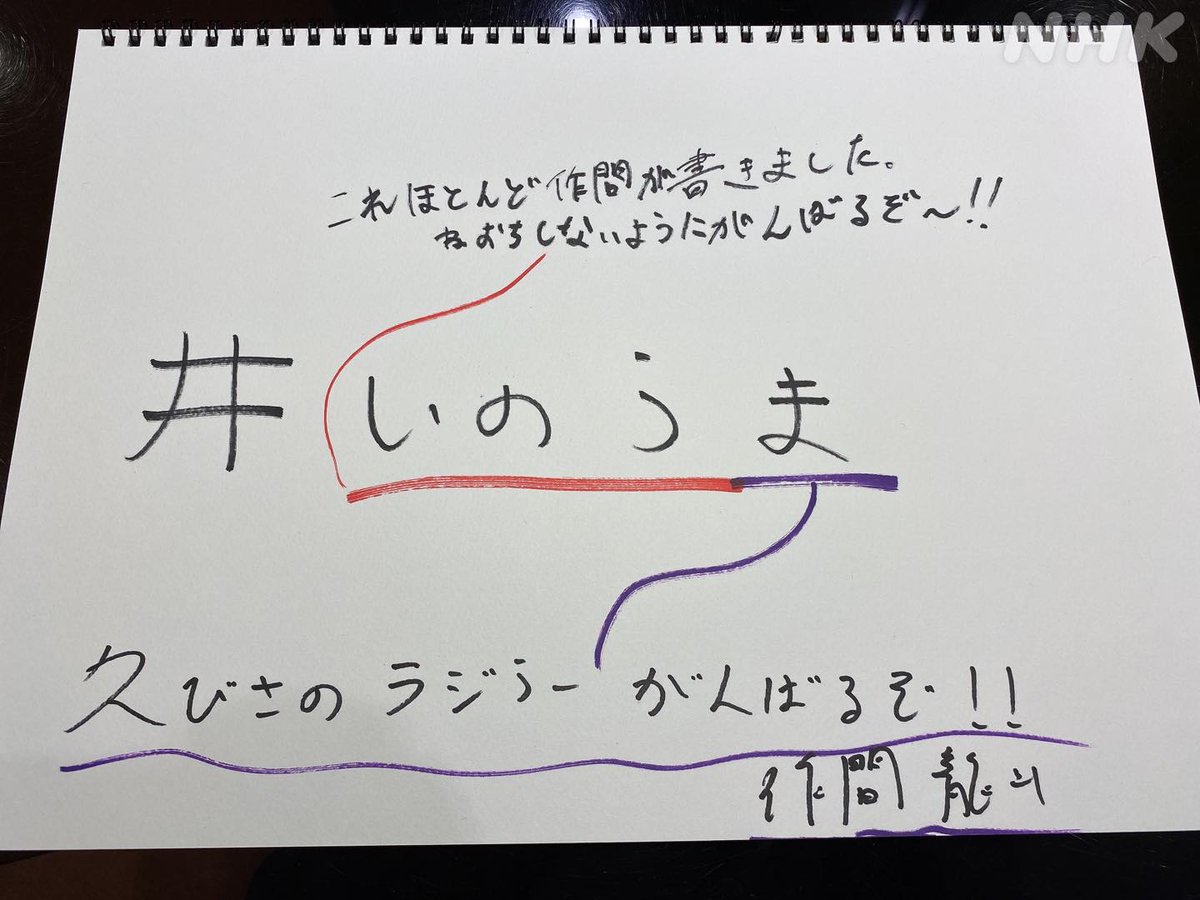 NHK
これほとんど作間が書きました。
ねおちしないようにがんばるぞ〜!!
井いのうま
久びさのラジらー がんばるぞ!!
作間龍斗